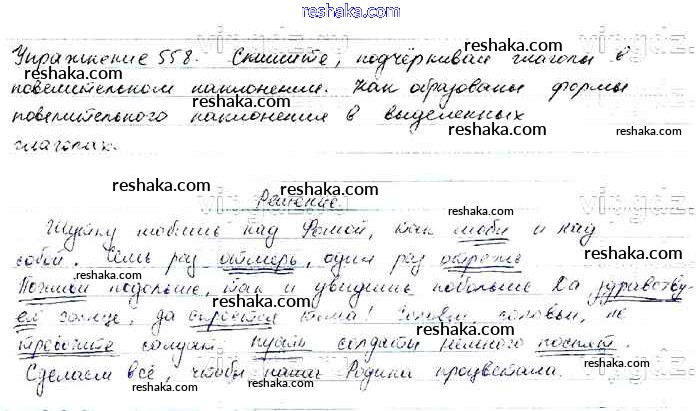 reshaka.com
Упражнение 558. Спишите, подчёркивая глаголы в
повелительном наклонении. Как образованы формы
повелительного наклонения в выделенных
глаголах.
reshaka.com
reshaka.com
reshaka.com
reshaka.com
Решение.
Шутку любишь над Фомой, так люби и над
собой. Семь раз отмерь, один раз отрежь
Поживи подольше, так и увидишь побольше. Да здравству-
ет солнце, да скроется тьма! Соловьи, соловьи, не
тревожьте солдат. пусть солдаты немного поспят.
Сделаем всё, чтобы наша Родина процветала.
reshaka.com
reshaka.com
reshaka.com
reshaka.com
reshaka.com
reshaka.com
reshaka.com
reshaka.com
reshaka.com
reshaka.com